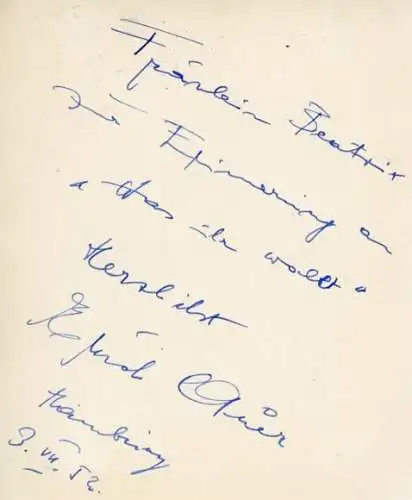 Fräulein Beatrix
zur Erinnerung an
„Was ihr wollt"
Herzlichst
Auer
Hamburg
3. VII. 52.